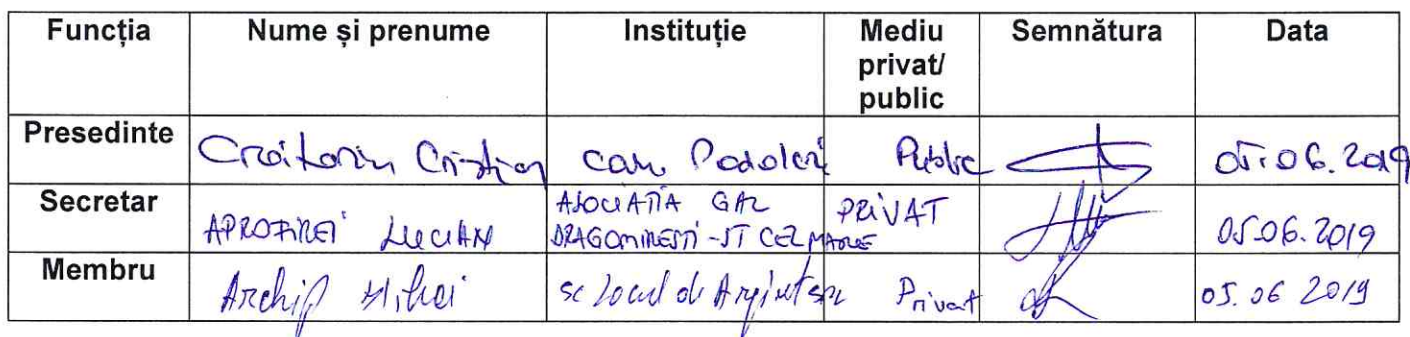 Funcția Nume și prenume Instituție Mediu privat/ public Semnătura Data
Presedinte Croitoriu Cristian com Podoleni Public 05.06.2019
Secretar APROFIREI LUCIAN ASOCIATIA GAL DRAGOMIRESTI-ST CEL MARE PRIVAT 05.06.2019
Membru Archip Mihai sc Privat 05.06 2019